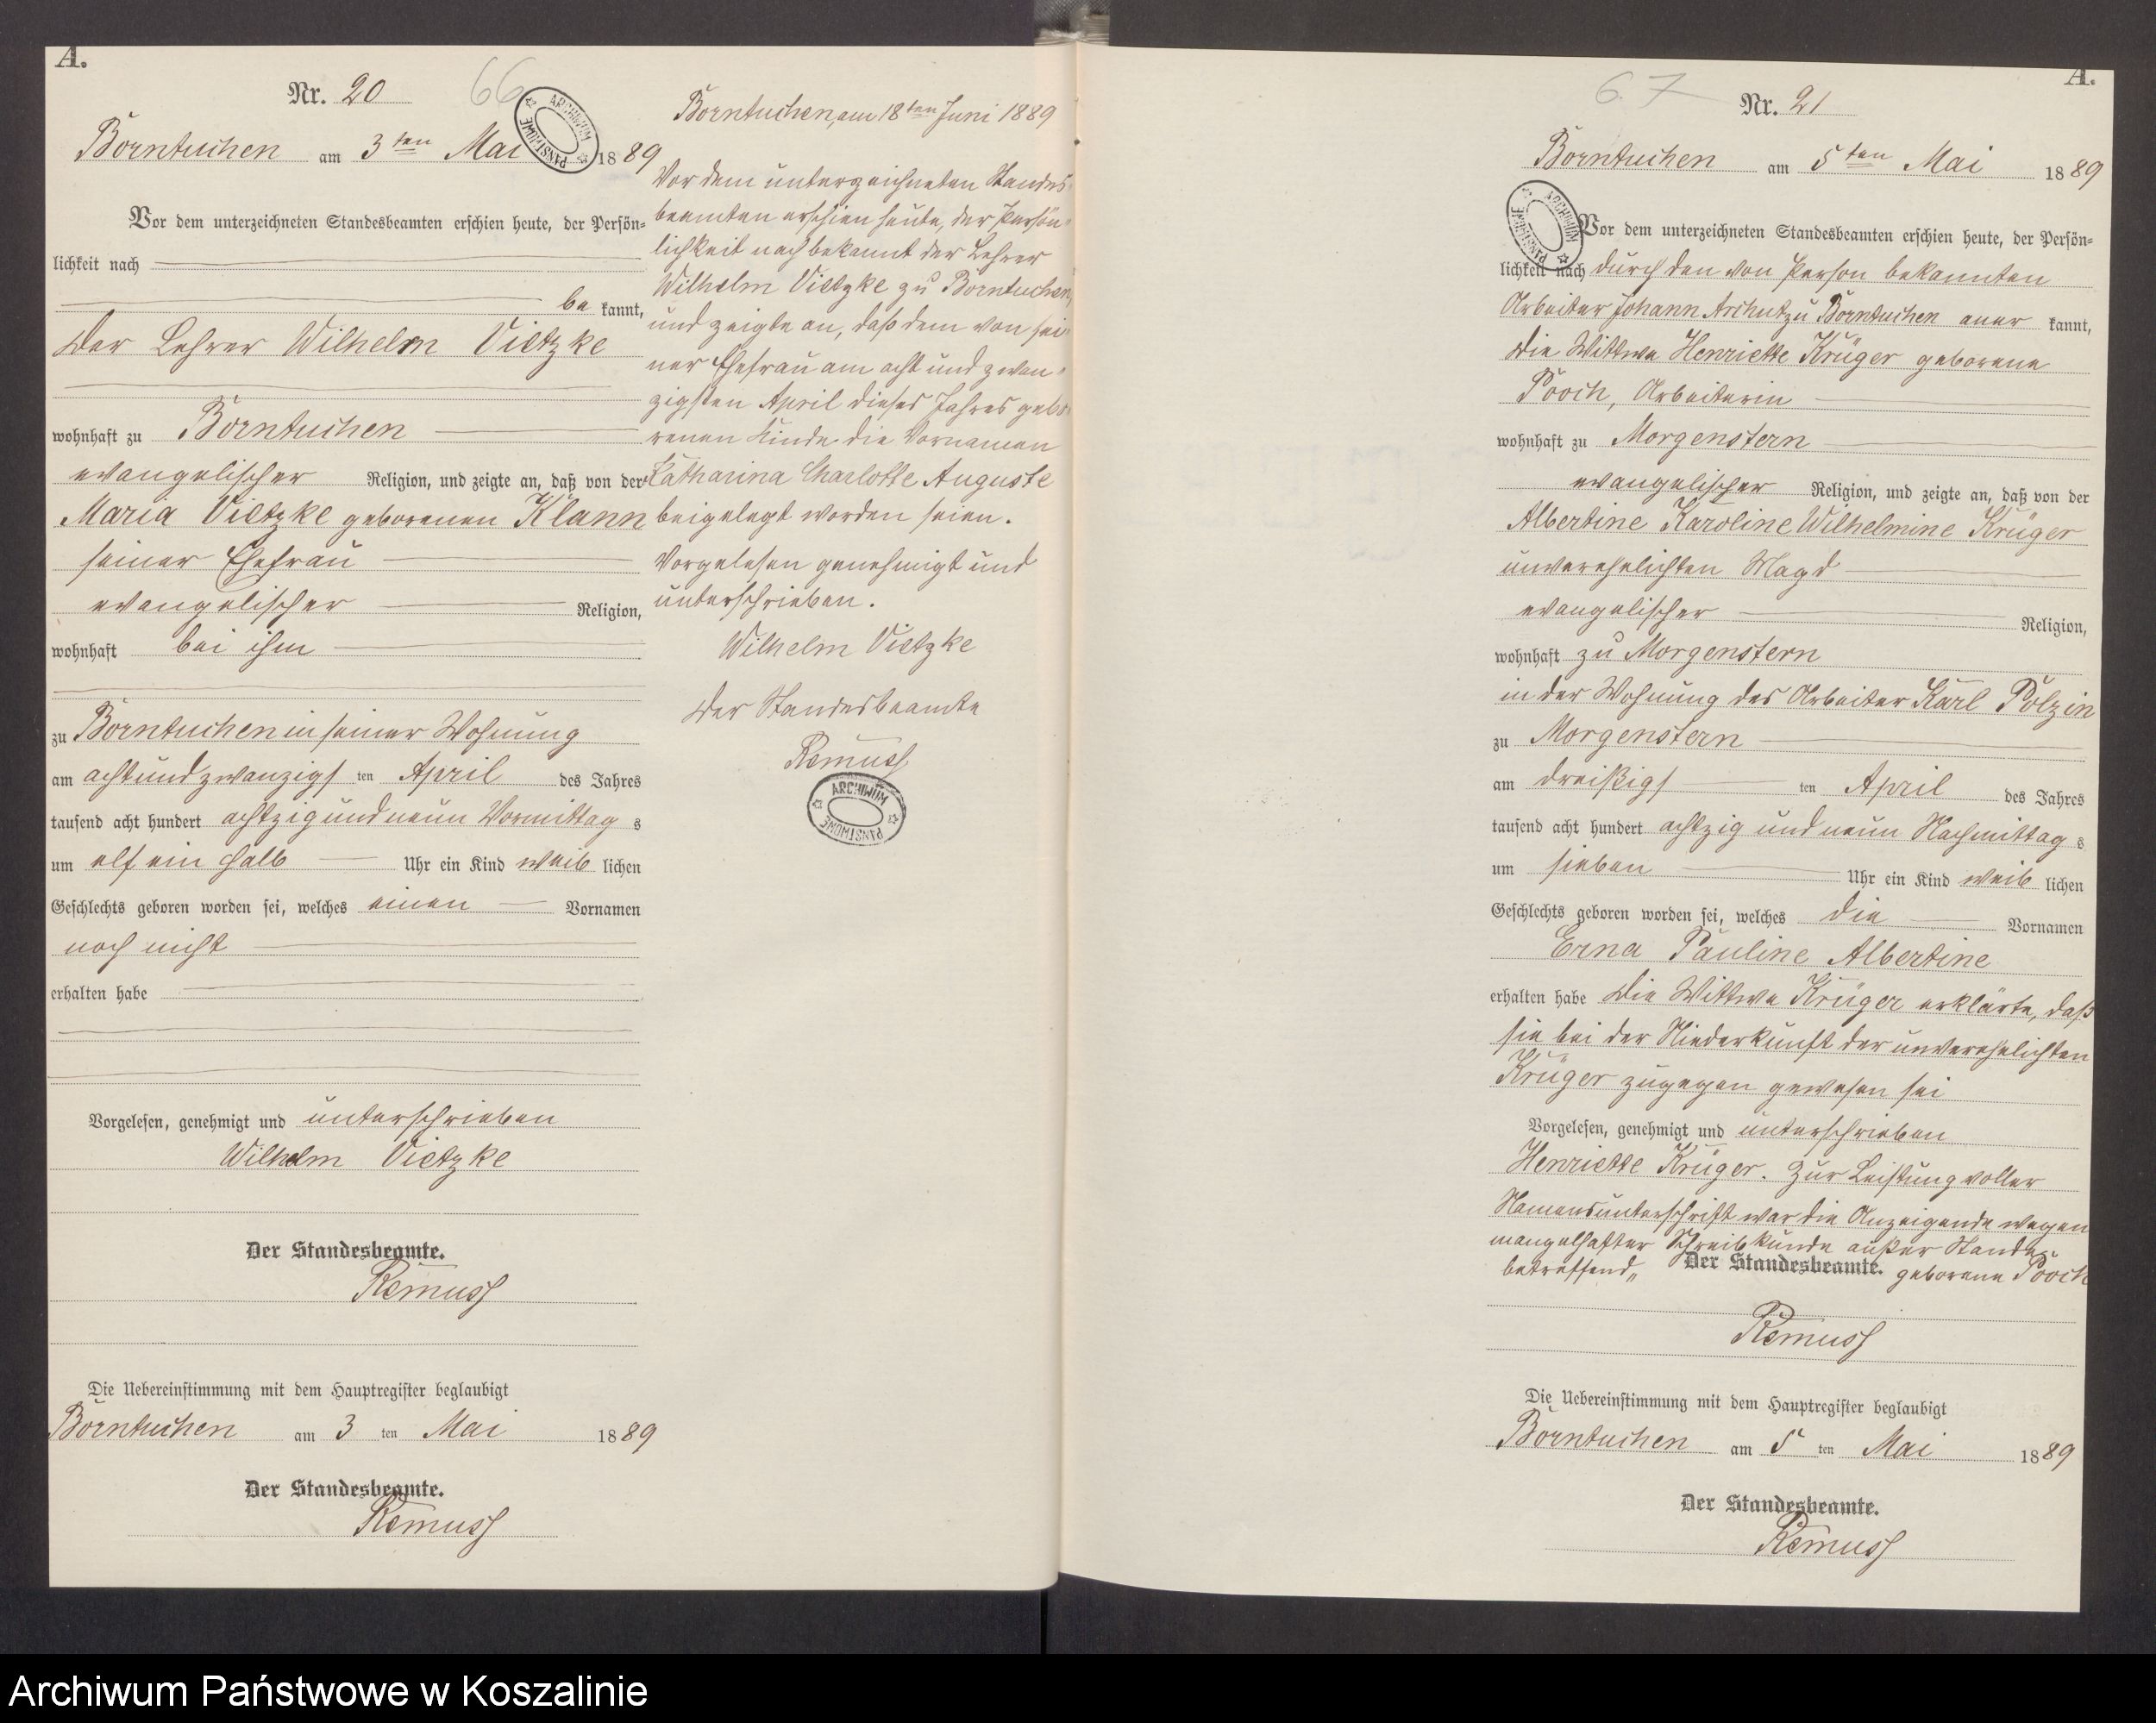 A.
Nr. 20
66
ARCHIWUM PAŃSTWOWE
Borntuchen am 3ten Mai 1889
Vor dem unterzeichneten Standesbeamten erschien heute, der Persön=
lichkeit nach
be kannt,
der Lehrer Wilhelm Vietzke
wohnhaft zu Borntuchen
evangelischer Religion, und zeigte an, daß von der
Maria Vietzke geborenen Klann
seiner Ehefrau
evangelischer Religion,
wohnhaft bei ihm
zu Borntuchen in seiner Wohnung
am achtundzwanzigs ten April des Jahres
tausend acht hundert achtzig und neun Vormittag s
um elf ein halb Uhr ein Kind weib lichen
Geschlechts geboren worden sei, welches einen Vornamen
noch nicht
erhalten habe
Vorgelesen, genehmigt und unterschrieben
Wilhelm Vietzke
Der Standesbeamte.
Remuss
Die Uebereinstimmung mit dem Hauptregister beglaubigt
Borntuchen am 3 ten Mai 1889
Der Standesbeamte.
Remuss
Borntuchen, am 18ten Juni 1889
Vor dem unterzeichneten Standes=
beamten erschien heute, der Persön=
lichkeit nach bekannt der Lehrer
Wilhelm Vietzke zu Borntuchen,
und zeigte an, daß dem von sei=
ner Ehefrau am acht und zwan=
zigsten April dieses Jahres gebo=
renen Kinde die Vornamen
Katharina Charlotte Auguste
beigelegt worden seien.
Vorgelesen genehmigt und
unterschrieben.
Wilhelm Vietzke
Der Standesbeamte
Remuss
ARCHIWUM PAŃSTWOWE
A.
67
Nr. 21
Borntuchen am 5ten Mai 1889
ARCHIWUM PAŃSTWOWE
Vor dem unterzeichneten Standesbeamten erschien heute, der Persön=
lichkeit nach durch den von Person bekannten
Arbeiter Johann Aschutz zu Borntuchen aner kannt,
die Wittwe Henriette Krüger geborene
Pooch, Arbeiterin
wohnhaft zu Morgenstern
evangelischer Religion, und zeigte an, daß von der
Albertine Karoline Wilhelmine Krüger
unverehelichten Magd
evangelischer Religion,
wohnhaft zu Morgenstern
in der Wohnung des Arbeiter Karl Polzin
zu Morgenstern
am dreißigs ten April des Jahres
tausend acht hundert achtzig und neun Nachmittag s
um sieben Uhr ein Kind weib lichen
Geschlechts geboren worden sei, welches die Vornamen
Erna Pauline Albertine
erhalten habe Die Wittwe Krüger erklärte, daß
sie bei der Niederkunft der unverehelichten
Krüger zugegen gewesen sei
Vorgelesen, genehmigt und unterschrieben
Henriette Krüger. Zur Leistung voller
Namensunterschrift war die Anzeigende wegen
mangelhafter Schreibkunde außer Stande
betreffend„ geborene Pooch
Der Standesbeamte.
Remuss
Die Uebereinstimmung mit dem Hauptregister beglaubigt
Borntuchen am 5 ten Mai 1889
Der Standesbeamte.
Remuss
Archiwum Państwowe w Koszalinie